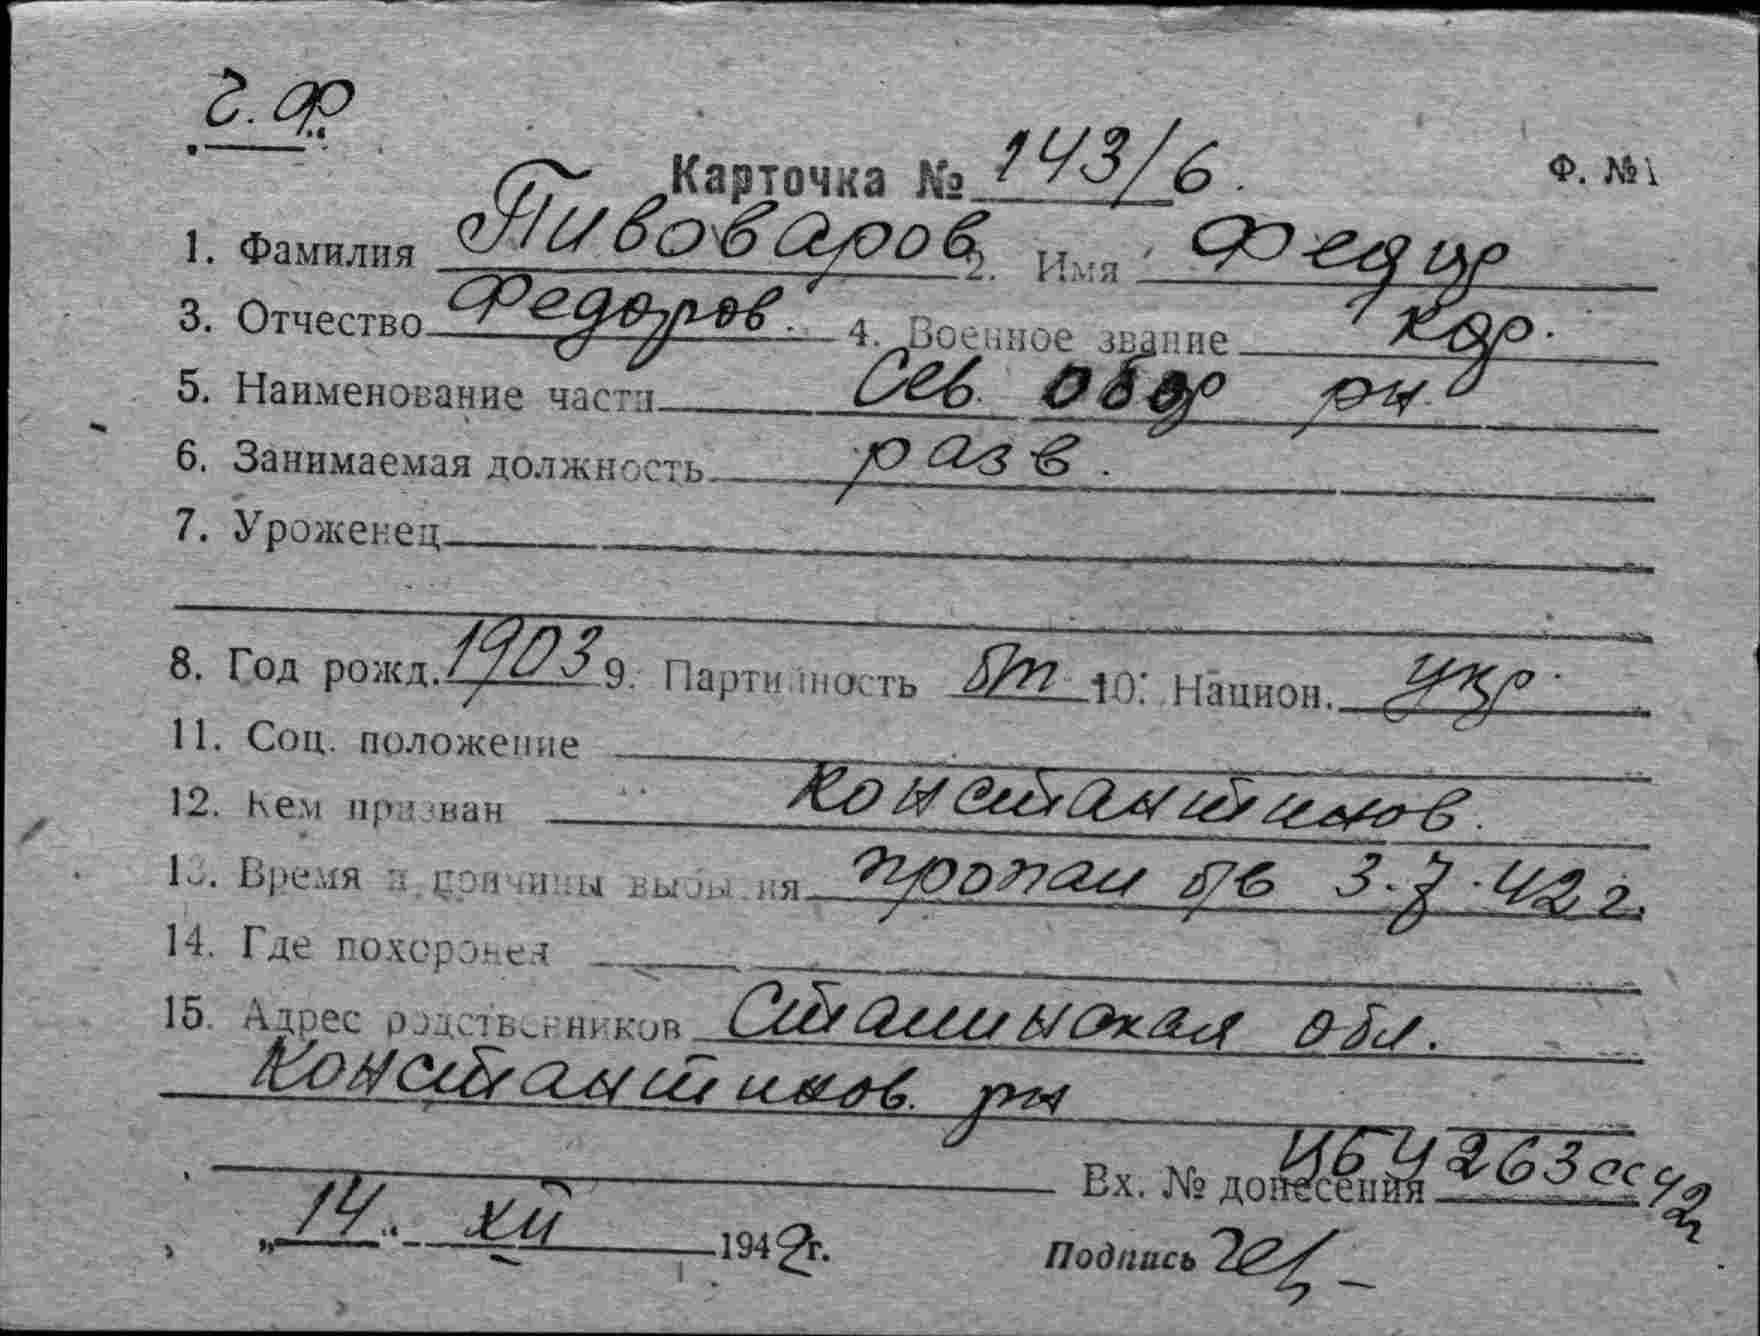 Ч. Ф
Карточка № 143/6. Ф. №1
1. Фамилия Пивоваров 2. Имя Федор
3. Отчество Федоров. 4. Военное звание кр.
5. Наименование части Сев. обор рн.
6. Занимаемая должность разв.
7. Уроженец
8. Год рожд. 1903 9. Партийность бп 10. Национ. укр.
11. Соц. положение
12. Кем призван Константинов.
13. Время и причины выбытия пропал б/в 3.7.42 г.
14. Где похоронен
15. Адрес родственников Сталинская обл.
Константинов. рн
Вх. № донесения 263сс 42
„14“ XII 1942г. Подпись